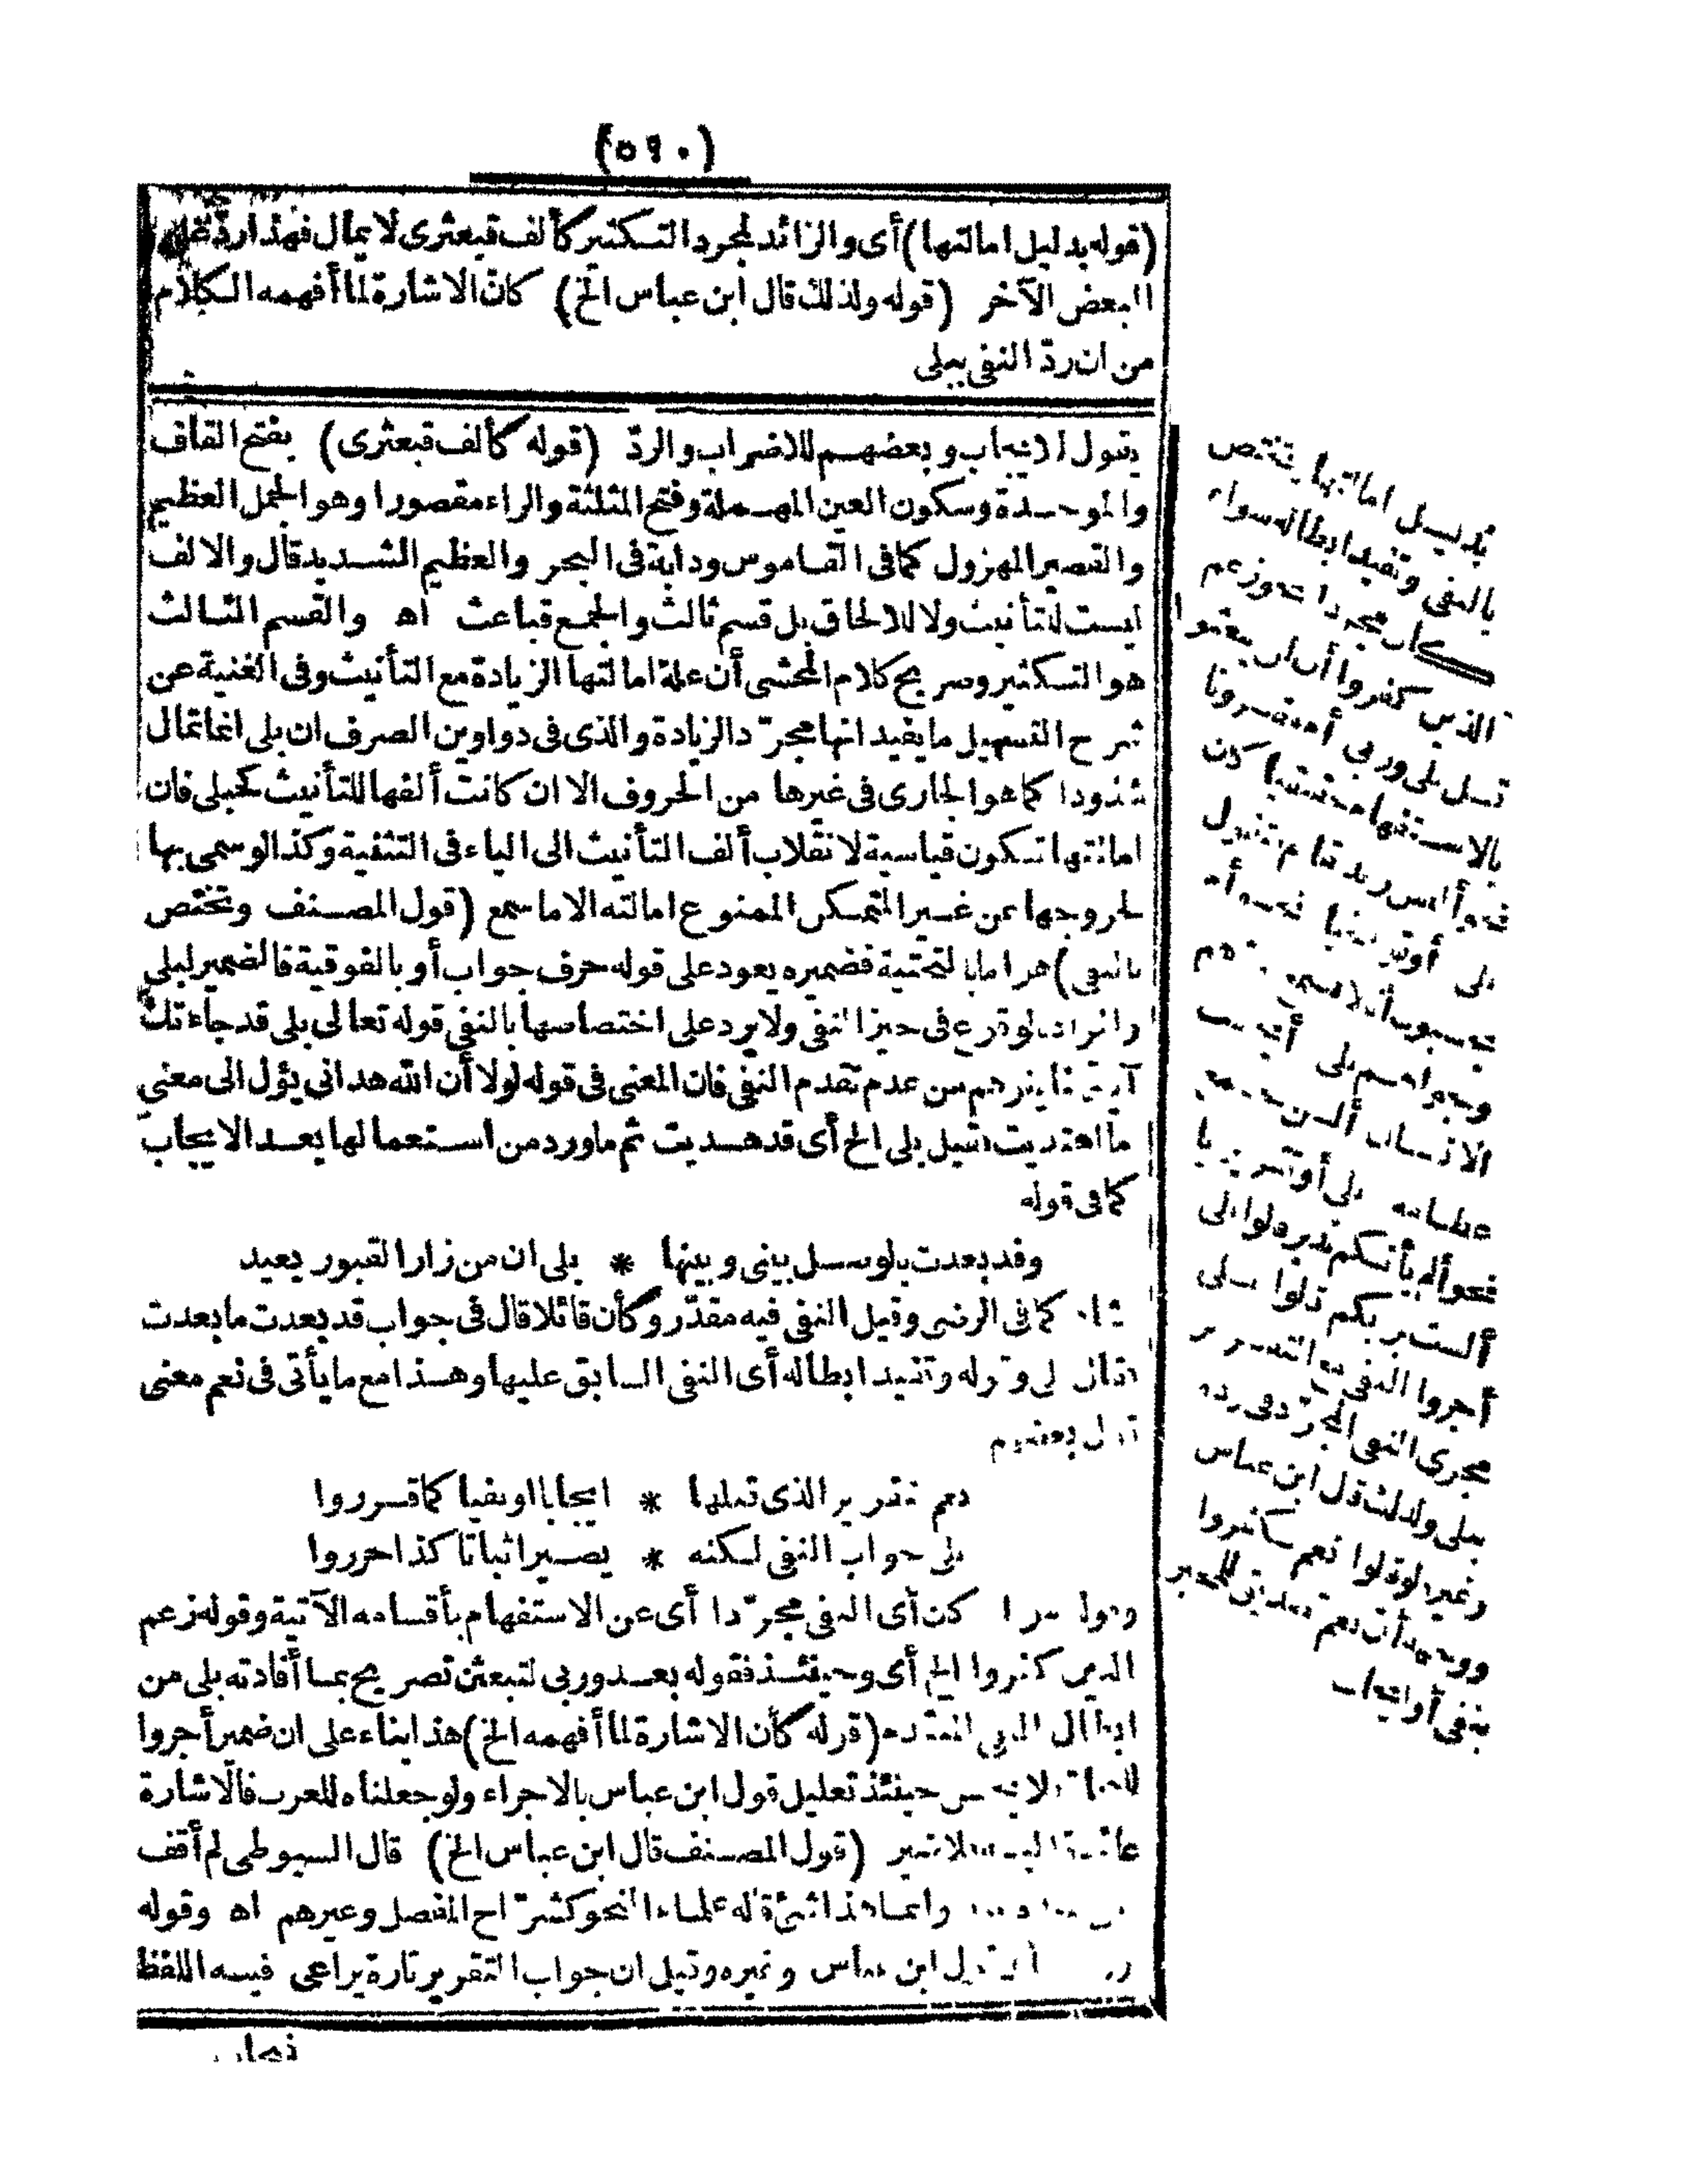 (٥٩٠)
(قوله بدليل امالتها) أى والزائد لمجرد التكثير كألف قبعثرى لا يمال فهذا ردّ
البعض الآخر (قوله ولذلك قال ابن عباس الخ) كانّ الاشارة لما أفهمه الكلام
من ان ردّ النفى ببلى
يقول الايجاب وبعضهم للاضراب والردّ (قوله كألف قبعثرى) بفتح القاف
والموحدة وسكون العين المهملة وفتح المثلثة والراء مقصورا وهو الجمل العظيم
والقصير المهزول كما فى القاموس ودابة فى البحر والعظيم الشديد قال والالف
ليست للتأنيث ولا للالحاق بل قسم ثالث والجمع قباعث اه والقسم الثالث
هو التكثير وصريح كلام المحشى أن علة امالتها الزيادة مع التأنيث وفى الغنية عن
شرح التسهيل ما يفيد انها مجرّد الزيادة والذى فى دواوين الصرف ان بلى انما تمال
شذوذا كما هو الجارى فى غيرها من الحروف الا ان كانت ألفها للتأنيث كحبلى فان
امالتها تكون قياسية لانقلاب ألف التأنيث الى الياء فى التثنية وكذا لو سمى بها
لخروجها عن غير المتمكن الممنوع امالته الا ما سمع (قول المصنف وتختص
بالنفى) هو اما بالتحتية فضميره يعود على قوله حرف جواب أو بالفوقية فالضمير لبلى
والمراد وقوع فى حيز النفى ولا يرد على اختصاصها بالنفى قوله تعالى بلى قد جاءتك
من عدم تقدم النفى فان المعنى فى قوله لولا أن الله هدانى يؤل الى معنى
ما اهتديت فقيل بلى الخ أى قد هديت ثم ما ورد من استعمالها بعد الايجاب
كما فى قوله
وقد بعدت بالوصل بينى وبينها * بلى ان من زار القبور بعيد
شاذ كما فى الرضى وقيل النفى فيه مقدّر وكأن قائلا قال فى جواب قد بعدت ما بعدت
وقوله وتفيد ابطاله أى النفى السابق عليها وهذا مع ما يأتى فى نعم معنى
قول بعضهم
نعم تقرير الذى قبلها * ايجابا او نفيا كما قرروا
بلى جواب النفى لكنه * يصير اثباتا كذا حرروا
كان أى النفى مجرّدا أى عن الاستفهام بأقسامه الآتية وقوله زعم
الذين كفروا الخ أى وحينئذ فقوله بعد وربى لتبعثن تصريح بما أفادته بلى من
ابطال النفى (قوله كأن الاشارة لما أفهمه الخ) هذا بناء على ان ضمير أجروا
للنحاة حينئذ تعليل قول ابن عباس بالاجراء ولو جعلناه للعرب فالاشارة
(قول المصنف قال ابن عباس الخ) قال السيوطى لم أقف
وانما هذا علماء النحو كشرّاح المفصل وغيرهم اه وقوله
ابن عباس وغيره وقيل ان جواب التقرير تارة يراعى فيه اللفظ
بدليل امالتها وتختص
بالنفى وتفيد ابطاله سواء
كان مجردا نحو زعم
الذين كفروا أن لن يبعثوا
قل بلى وربى أم مقرونا
بالاستفهام حقيقيا كان
نحو أليس زيد بقائم فتقول
بلى أو توبيخيا نحو أم
يحسبون أنا لا نسمع سرهم
ونجواهم بلى أيحسب
الانسان ألن نجمع
عظامه بلى أو تقريريا
نحو ألم يأتكم نذير قالوا بلى
ألست بربكم قالوا بلى
أجروا النفى مع التقرير
مجرى النفى المجرّد فى رده
ببلى ولذلك قال ابن عباس
وغيره لو قالوا نعم كفروا
ووجهه أن نعم تصديق للمخبر
بنفى أو ايجاب